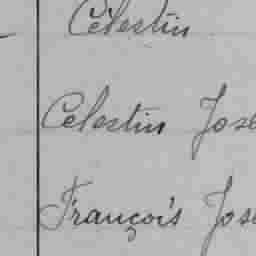 Célestin
Celestin Jose
François Jose